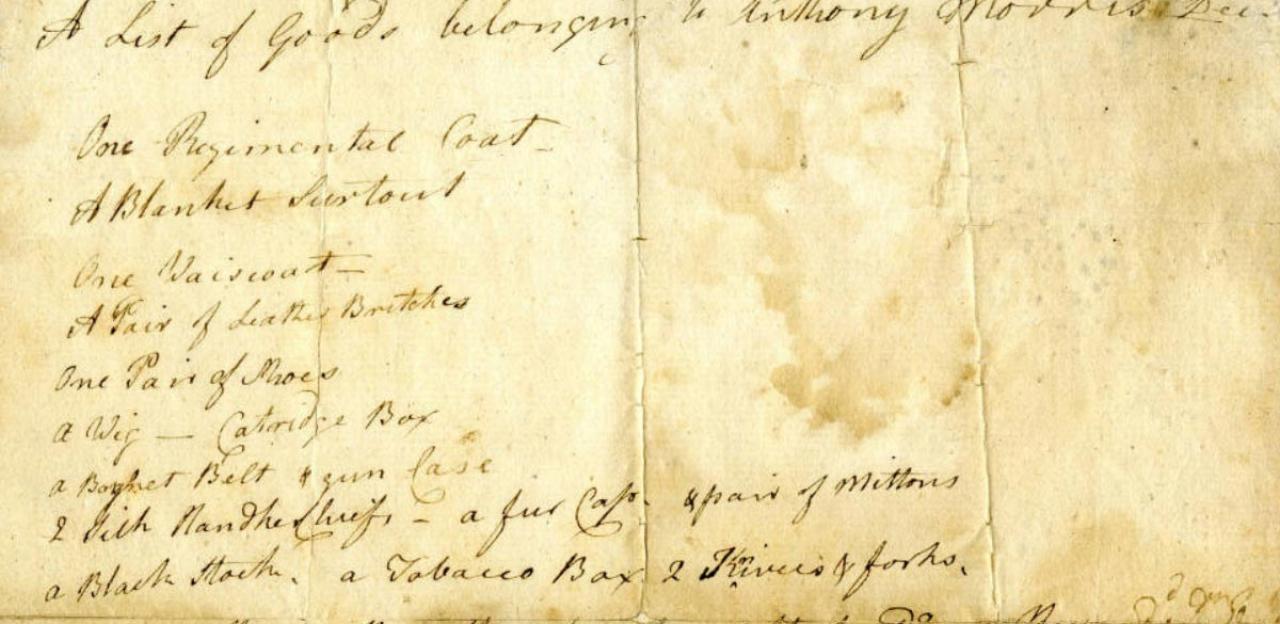 A List of Goods belonging to Anthony Morris
One Regimental Coat -
A Blanket Surtout
One Vaiscoat -
A Pair of Leather Britches
One Pair of Shoes
a Wig — Catridge Box
a Baynet Belt & gun Case
2 Silk Handkerchiefs - a fur Cap. & pair of Mittons
a Black Stock. a Tobacco Box 2 Knives & forks.